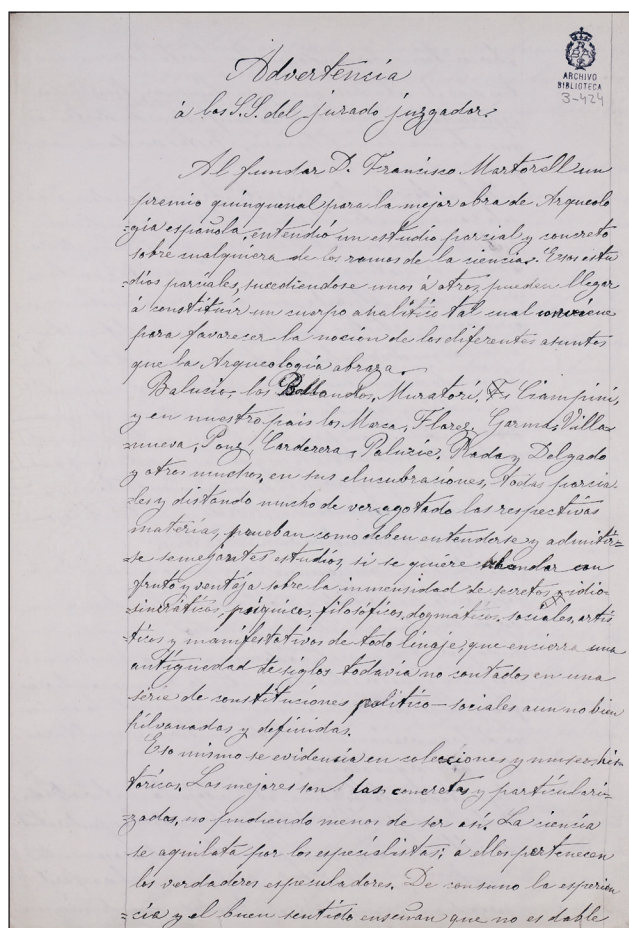 ARCHIVO
BIBLIOTECA
3-424
Advertencia
á los S.S. del jurado juzgador.
Al fundar D. Francisco Martorell un
premio quinquenal para la mejor obra de Arqueolo
gía española, entendió un estudio parcial y concreto
sobre cualquiera de los ramos de la ciencia. Esos estu
dios parciales, sucediendose unos á otros, pueden llegar
á constituír un cuerpo analítico tal cual conviene
para favorecer la noción de los diferentes asuntos
que la Arqueología abraza.
Balucio, los Bollandos, Muratori, Ciampini,
y en nuestro pais los Marca, Florez, Garma, Villa=
=nueva, Ponz, Carderera, Paluzie, Rada y Delgado
y otros muchos, en sus elucubraciones, todas parcia=
les y distando mucho de ver agotado las respectivas
materias, prueban como deben entenderse y admitir=
=se semejantes estudios, si se quiere ahondar con
fruto y ventaja sobre la inmensidad de secretos idio=
=sincráticos, psíquicos, filosóficos, dogmáticos, sociales, artís
=ticos y manifestativos de todo linaje, que encierra una
antigüedad de siglos todavía no contados en una
série de constituciones político-sociales aun no bien
hilvanadas y definidas.
Eso mismo se evidencia en colecciones y museos his
tóricos. Los mejores son las concretas y particulari=
=zadas, no pudiendo menos de ser así. La ciencia
se aquilata por los especialistas; á ellos pertenecen
los verdaderos especuladores. De consuno la esperien
=cia y el buen sentido enseñan que no es dable